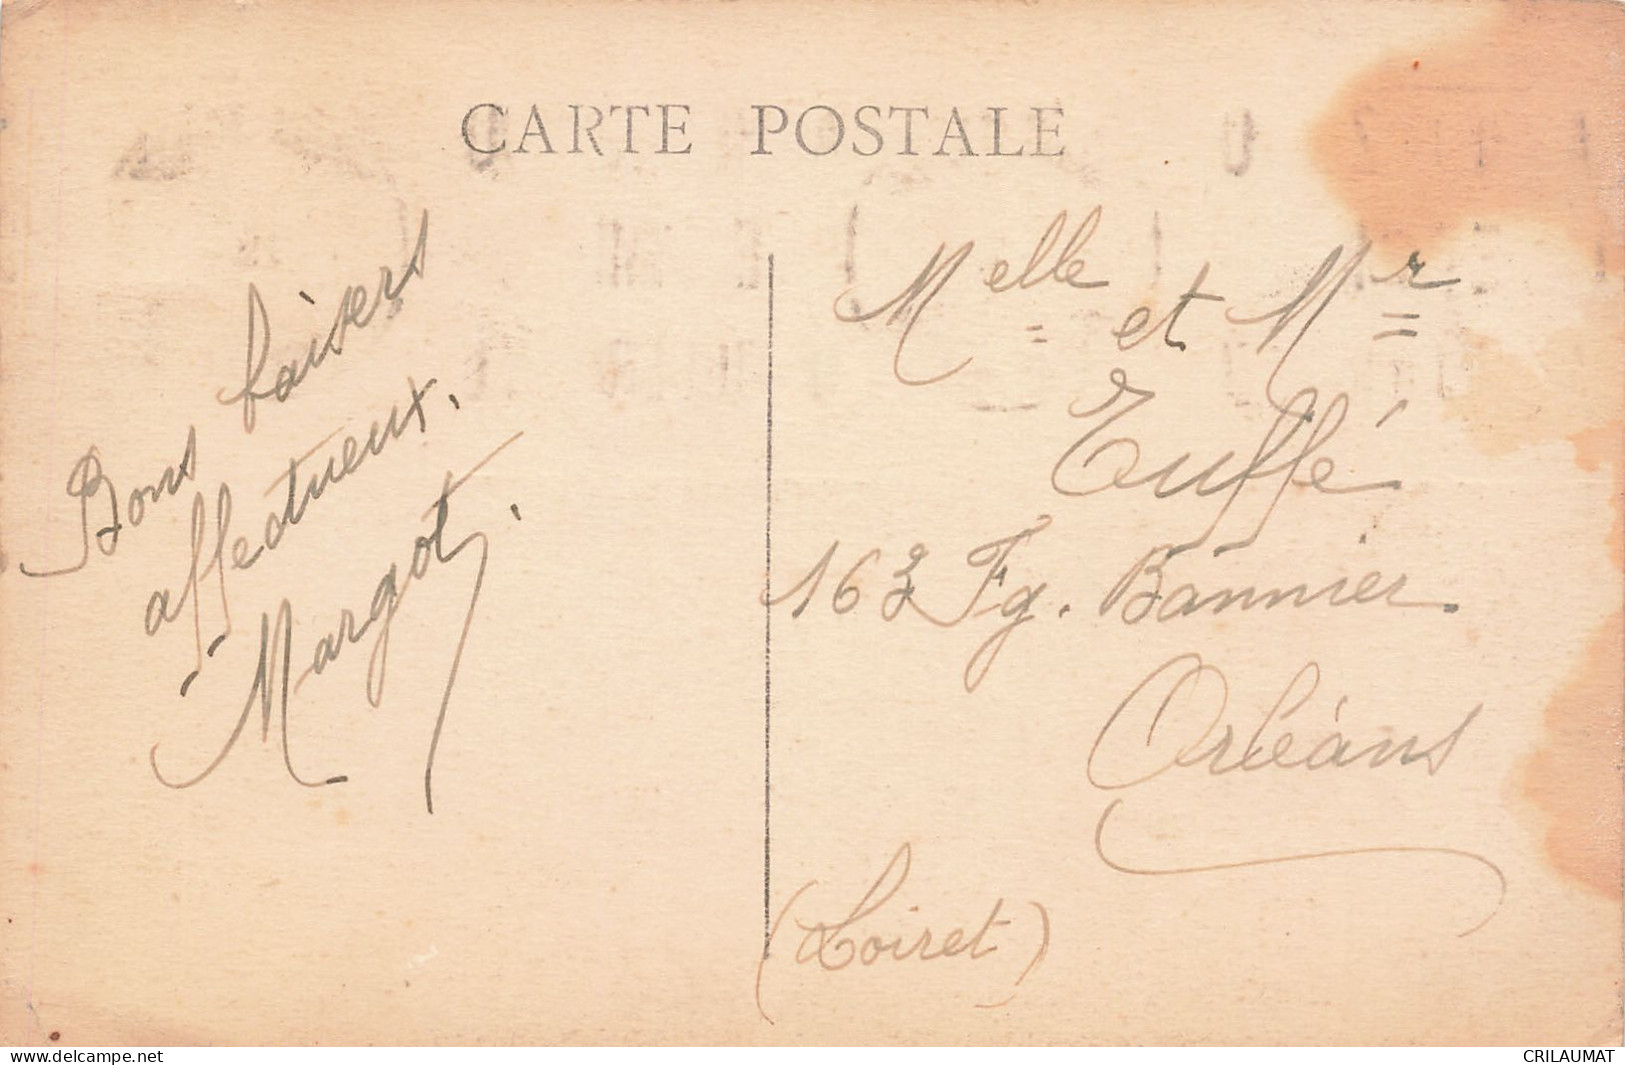 CARTE POSTALE
Bons baisers
affectueux.
Margot.
Melle et Mr
Tuffé
163 Fg. Bannier
Orléans
(Loiret)
www.delcampe.net
CRILAUMAT